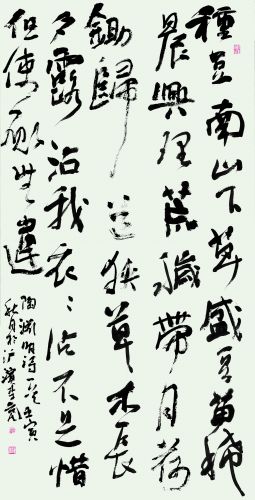 種豆南山下草盛豆苗稀
晨興理荒穢帶月荷
鋤歸道狹草木長
夕露沾我衣〻沾不足惜
但使願無違
陶淵明詩一首壬寅
秋月於沪濱李